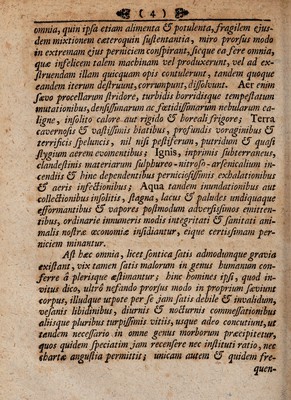 ( 4 )
omnia, quin ipsa etiam alimenta & potulenta, fragilem ejus-
dem mixtionem cæteroquin sustentantia, miro prorsus modo
in extremam ejus perniciem conspirant, sicque ea fere omnia,
quæ infelicem talem machinam vel produxerunt, vel ad ex-
struendam illam quicquam opis contulerunt, tandem quoque
eandem iterum destruunt, corrumpunt, dissolvunt. Aer enim
sævo procellarum stridore, turbidis horridisque tempestatum
mutationibus, densissimarum ac fœtidissimarum nebularum ca-
ligne, insolito calore aut rigido & boreali frigore; Terra
cavernosis & vastissimis hiatibus, profundis voraginibus &
terrificis speluncis, nil nisi pestiferum, putridum & quasi
stygium aerem evomentibus; Ignis, inprimis subterraneus,
clandestinis materiarum sulphureo-nitroso-arsenicalium in-
cendiis & hinc dependentibus perniciosissimis exhalationibus
& aeris infectionibus; Aqua tandem inundationibus aut
collectionibus insolitis, stagna, lacus & paludes undiquaque
efformantibus & vapores postmodum adversissimos emitten-
tibus, ordinarie innumeris modis integritati & sanitati ani-
malis nostræ œconomiæ insidiantur, eique certissimam per-
niciem minantur.
Ast hæc omnia, licet sontica satis admodumque gravia
existant, vix tamen satis malorum in genus humanum con-
ferre à plerisque æstimantur; hinc homines ipsi, quod in-
vitus dico, ultrò nefando prorsus modo in proprium sæviunt
corpus, illudque utpote per se jam satis debile & invalidum,
vesanis libidinibus, diurnis & nocturnis commessationibus
aliisque pluribus turpissimis vitiis, usque adeo concutiunt, ut
tandem necessario in omne genus morborum præcipitetur,
quos quidem speciatim jam recensere nec instituti ratio, nec
chartæ angustia permittit; unicam autem & quidem fre-
quen-